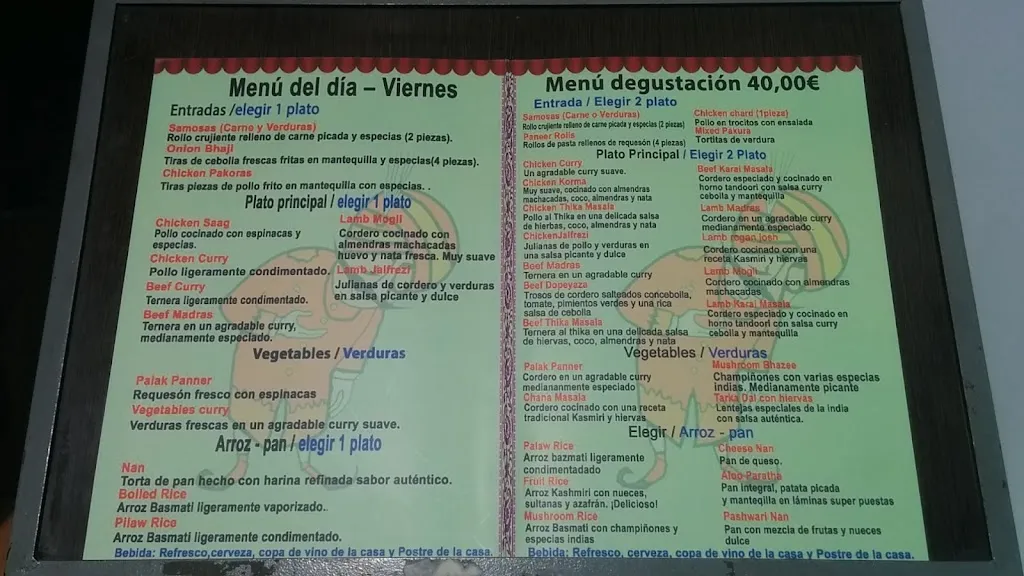 Menú del día – Viernes
Entradas /elegir 1 plato
Samosas (Carne y Verduras)
Rollo crujiente relleno de carne picada y especias (2 piezas).
Onion Bhaji
Tiras de cebolla frescas fritas en mantequilla y especias(4 piezas).
Chicken Pakoras
Tiras piezas de pollo frito en mantequilla con especias. .
Plato principal / elegir 1 plato
Chicken Saag
Pollo cocinado con espinacas y
especias.
Chicken Curry
Pollo ligeramente condimentado.
Beef Curry
Ternera ligeramente condimentado.
Beef Madras
Ternera en un agradable curry,
medianamente especiado.
Lamb Mogli
Cordero cocinado con
almendras machacadas
huevo y nata fresca. Muy suave
Lamb Jalfrezi
Julianas de cordero y verduras
en salsa picante y dulce
Vegetables / Verduras
Palak Panner
Requesón fresco con espinacas
Vegetables curry
Verduras frescas en un agradable curry suave.
Arroz - pan / elegir 1 plato
Nan
Torta de pan hecho con harina refinada sabor auténtico.
Boiled Rice
Arroz Basmati ligeramente vaporizado.
Pilaw Rice
Arroz Basmati ligeramente condimentado.
Bebida: Refresco,cerveza, copa de vino de la casa y Postre de la casa.
Menú degustación 40,00€
Entrada / Elegir 2 plato
Samosas (Carne o Verduras)
Rollo crujiente relleno de carne picada y especias (2 piezas)
Paneer Rolls
Rollos de pasta rellenos de requesón (4 piezas)
Chicken chard (1pieza)
Pollo en trocitos con ensalada
Mixed Pakura
Tortitas de verdura
Plato Principal / Elegir 2 Plato
Chicken Curry
Un agradable curry suave.
Chicken Korma
Muy suave, cocinado con almendras
machacadas, coco, almendras y nata
Chicken Thika Masala
Pollo al Thika en una delicada salsa
de hierbas, coco, almendras y nata
ChickenJalfrezi
Julianas de pollo y verduras en
una salsa picante y dulce
Beef Madras
Ternera en un agradable curry
Beef Dopeyaza
Trosos de cordero salteados concebolla,
tomate, pimientos verdes y una rica
salsa de cebolla
Beef Thika Masala
Ternera al thika en una delicada salsa
de hiervas, coco, almendras y nata
Beef Karai Masala
Cordero especiado y cocinado en
horno tandoori con salsa curry
cebolla y mantequilla
Lamb Madras
Cordero en un agradable curry
medianamente especiado.
Lamb rogan josh
Cordero cocinado con una
receta Kasmiri y hiervas
Lamb Mogli
Cordero cocinado con almendras
machacadas
Lamb Karai Masala
Cordero especiado y cocinado en
horno tandoori con salsa curry
cebolla y mantequilla
Vegetables / Verduras
Palak Panner
Cordero en un agradable curry
medianamente especiado
Chana Masala
Cordero cocinado con una receta
tradicional Kasmiri y hiervas
Mushroom Bhazee
Champiñones con varias especias
indias. Medianamente picante
Tarka Dal con hiervas
Lentejas especiales de la india
con salsa auténtica.
Elegir / Arroz - pan
Palaw Rice
Arroz bazmati ligeramente
condimentadado
Fruit Rice
Arroz Kashmiri con nueces,
sultanas y azafrán. ¡Delicioso!
Mushroom Rice
Arroz Basmati con champiñones y
especias indias
Cheese Nan
Pan de queso.
Aloo Paratha
Pan integral, patata picada
y manteqilla en láminas super puestas
Pashwari Nan
Pan con mezcla de frutas y nueces
dulce
Bebida: Refresco, cerveza, copa de vino de la casa y Postre de la casa.